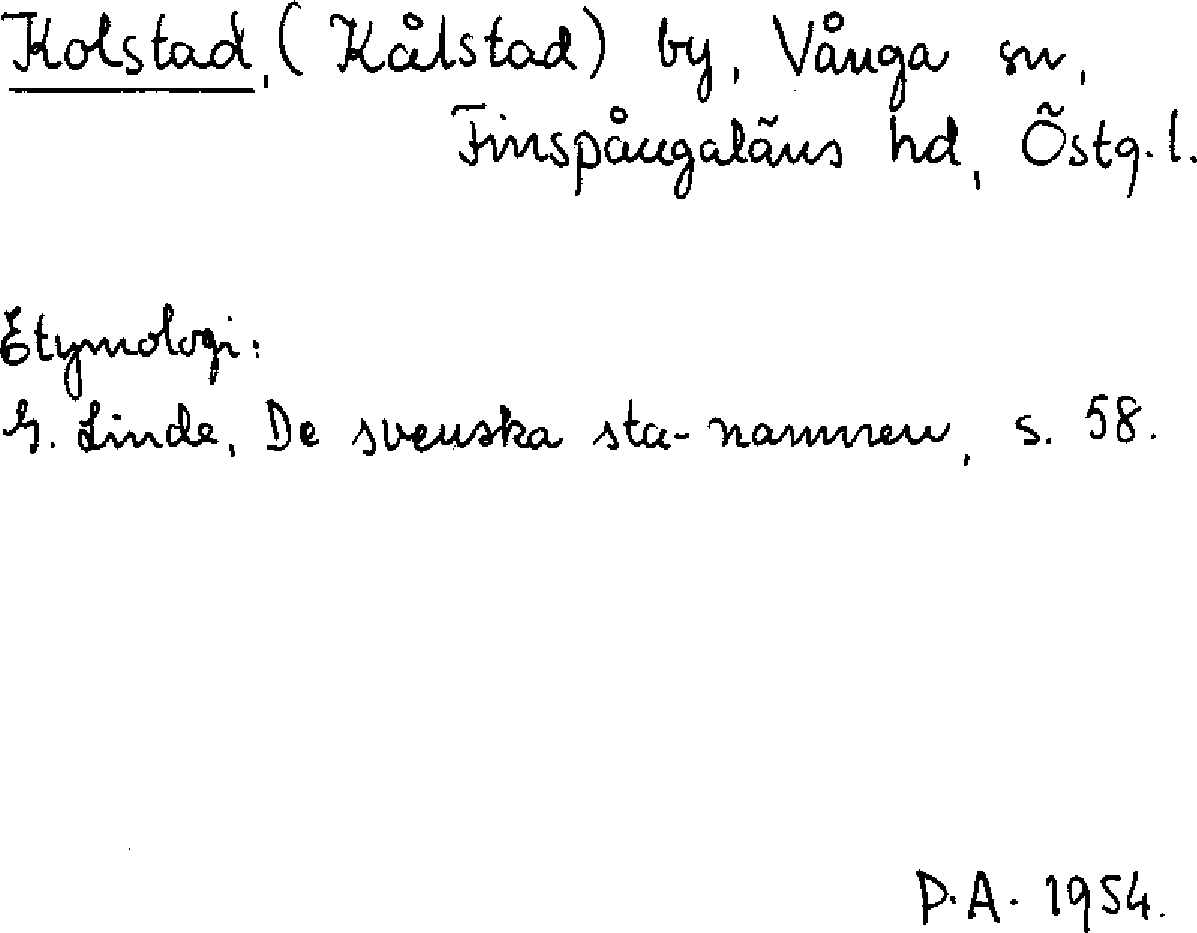 Kolstad, (Kålstad) by, Vånga sn,
Finspångaläns hd, Östg. l.
Etymologi:
G. Linde, De svenska sta-namnen, s. 58.
P.A. 1954.